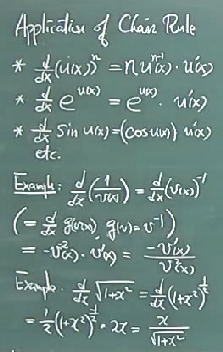 Application of Chain Rule
* d/dx (u(x))^n = n u^{n-1}(x) · u'(x)
* d/dx e^{u(x)} = e^{u(x)} · u'(x)
* d/dx Sin u(x) = (cos u(x)) u'(x)
etc.
Example: d/dx (1/v(x)) = d/dx (v(x))^{-1}
(= d/dx g(v(x)) g(v) = v^{-1})
= -v^{-2}(x) · v'(x) = -v'(x)/v^2(x)
Example. d/dx √(1+x^2) = d/dx (1+x^2)^{1/2}
= 1/2 (1+x^2)^{-1/2} · 2x = x/√(1+x^2)